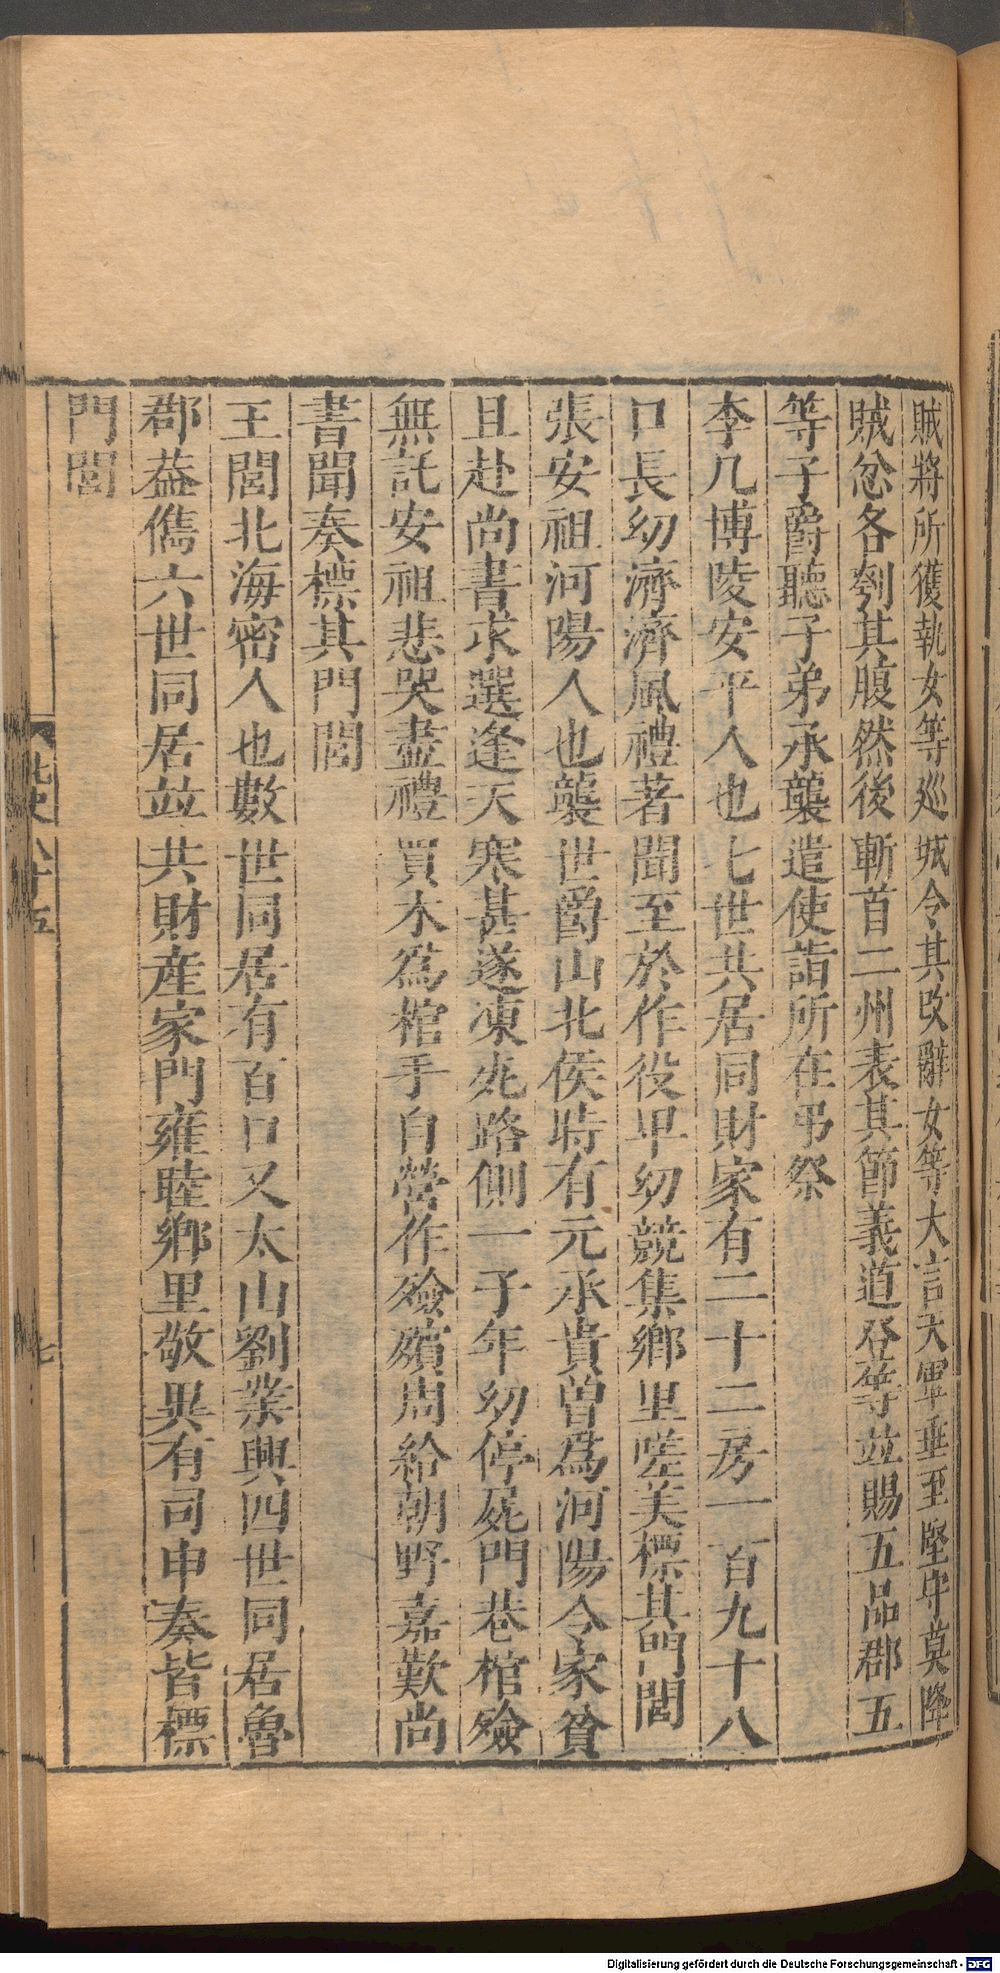 賊將所獲執女等巡城令其改辭女等大言天軍垂至堅守莫降
賊忿各刳其腹然後斬首二州表其節義道登等並賜五品郡五
等子爵聽子弟承襲遣使詣所在弔祭
李几博陵安平人也七世共居同財家有二十二房一百九十八
口長幼濟濟風禮著聞至於作役卑幼競集鄉里嗟美標其門閭
張安祖河陽人也襲世爵山北侯時有元承貴曾爲河陽令家貧
且赴尚書求選逢天寒甚遂凍死路側一子年幼停屍門巷棺殮
無託安祖悲哭盡禮買木爲棺手自營作殮殯周給朝野嘉歎尚
書聞奏標其門閭
王閭北海密人也數世同居有百口又太山劉業興四世同居魯
郡蓋儁六世同居並共財產家門雍睦鄉里敬異有司申奏皆標
門閭
北史八十五
七
Digitalisierung gefördert durch die Deutsche Forschungsgemeinschaft - DFG